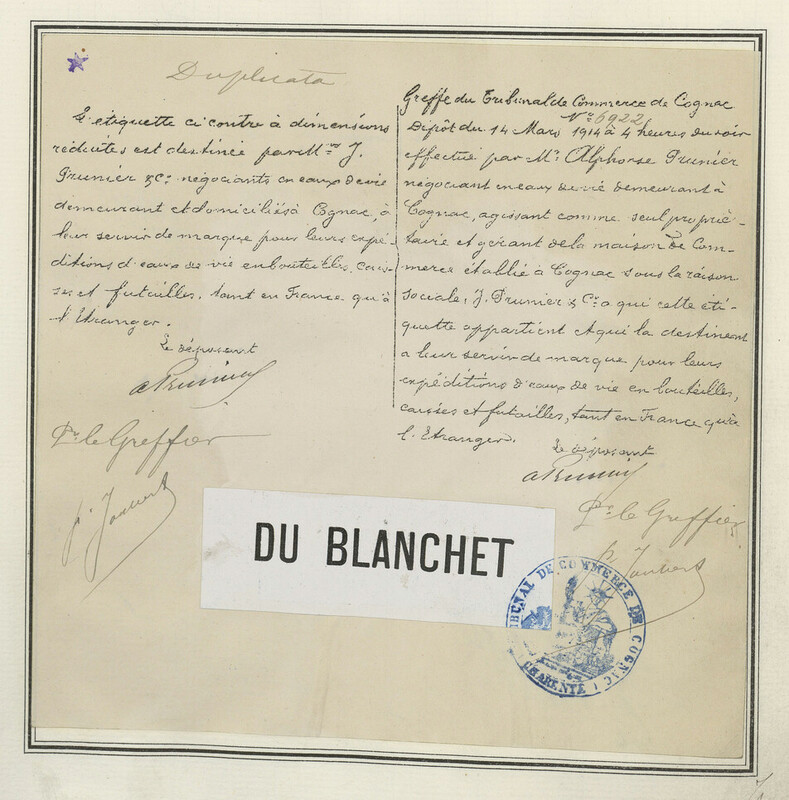 Duplicata
L'étiquette ci contre à dimensions
réduites est destinée par Mrs J.
Prunier & Cie négociants en eaux de vie
demeurant et domiciliés à Cognac, à
leur servir de marque pour leurs expé-
ditions d'eaux de vie en bouteilles, cais-
ses et futailles, tant en France qu'à
l'Etranger.
Le déposant
a Prunier
Pr le Greffier
p. Joubert
Greffe du Tribunal de Commerce de Cognac
N° 6922
Dépôt du 14 Mars 1914 à 4 heures du soir
effectué par Mr Alphonse Prunier
négociant en eaux de vie demeurant à
Cognac, agissant comme seul proprié-
taire et gérant de la maison de Com-
merce établie à Cognac sous la raison
sociale, J. Prunier & Cie a qui cette éti-
quette appartient et qui la destinent
a leur servir de marque pour leurs
expéditions d'eaux de vie en bouteilles,
caisses et futailles, tant en France qu'à
l'Etranger.
Le déposant
a Prunier
Pr le Greffier
p. Joubert
DU BLANCHET
TRIBUNAL DE COMMERCE DE COGNAC
(CHARENTE)